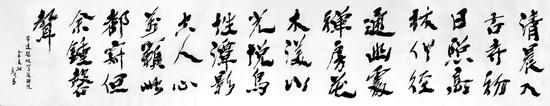 清晨入
古寺初
日照高
林竹徑
通幽處
禪房花
木深山
光悅鳥
性潭影
空人心
萬籟此
都寂但
余鐘磬
聲
常建題破山寺後禪院